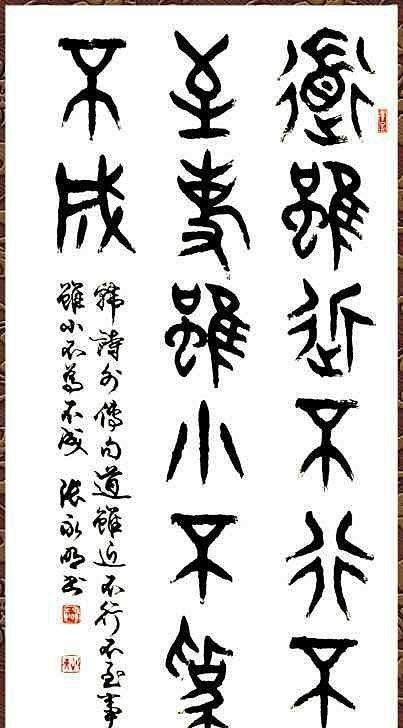 道雖近不行不
至事雖小不為
不成
韓詩外傳句道雖近不行不至事
雖小不為不成 張永明書